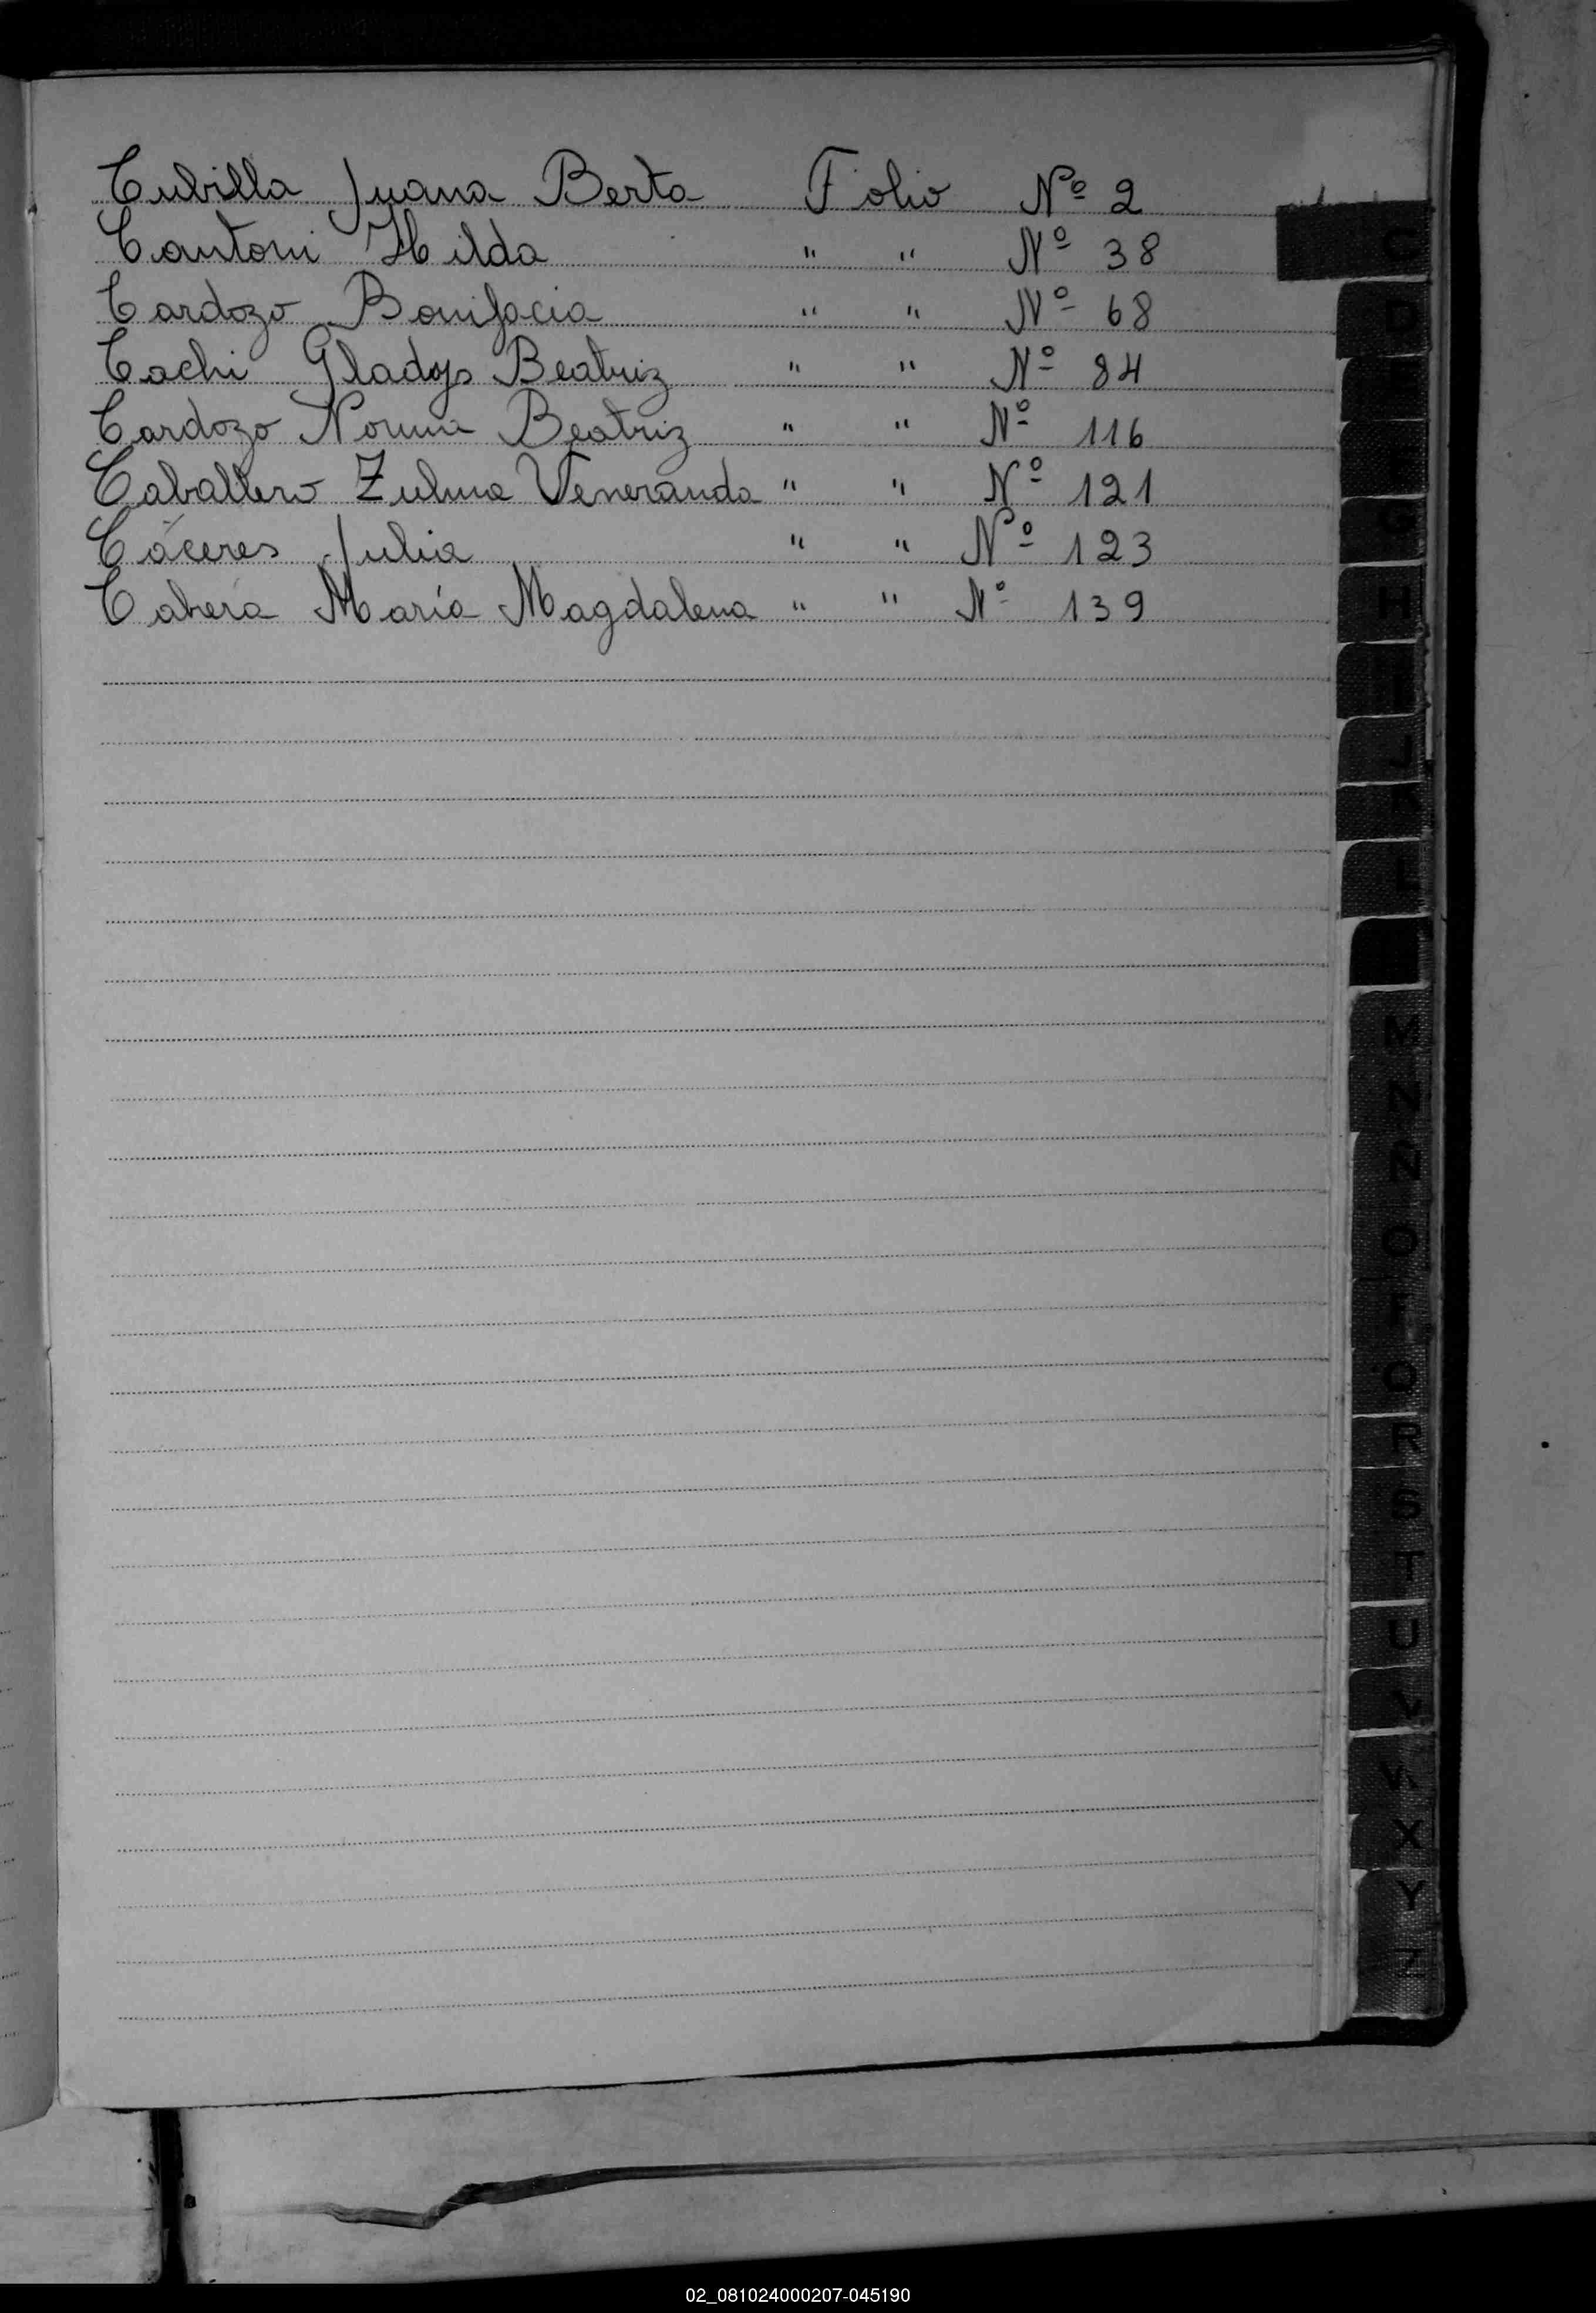 Cubilla Juana Berta Folio Nº 2
Cantoni Hilda " " Nº 38
Cardozo Bonifacia " " Nº 68
Cachi Gladys Beatriz " " Nº 84
Cardozo Norma Beatriz " " Nº 116
Caballero Zulma Veneranda " " Nº 121
Cáceres Julia " " Nº 123
María Magdalena " " Nº 139
C
D
G
H
I
J
L
M
N
Ñ
O
Q
R
S
T
U
V
X
Y
Z
02_081024000207-045190